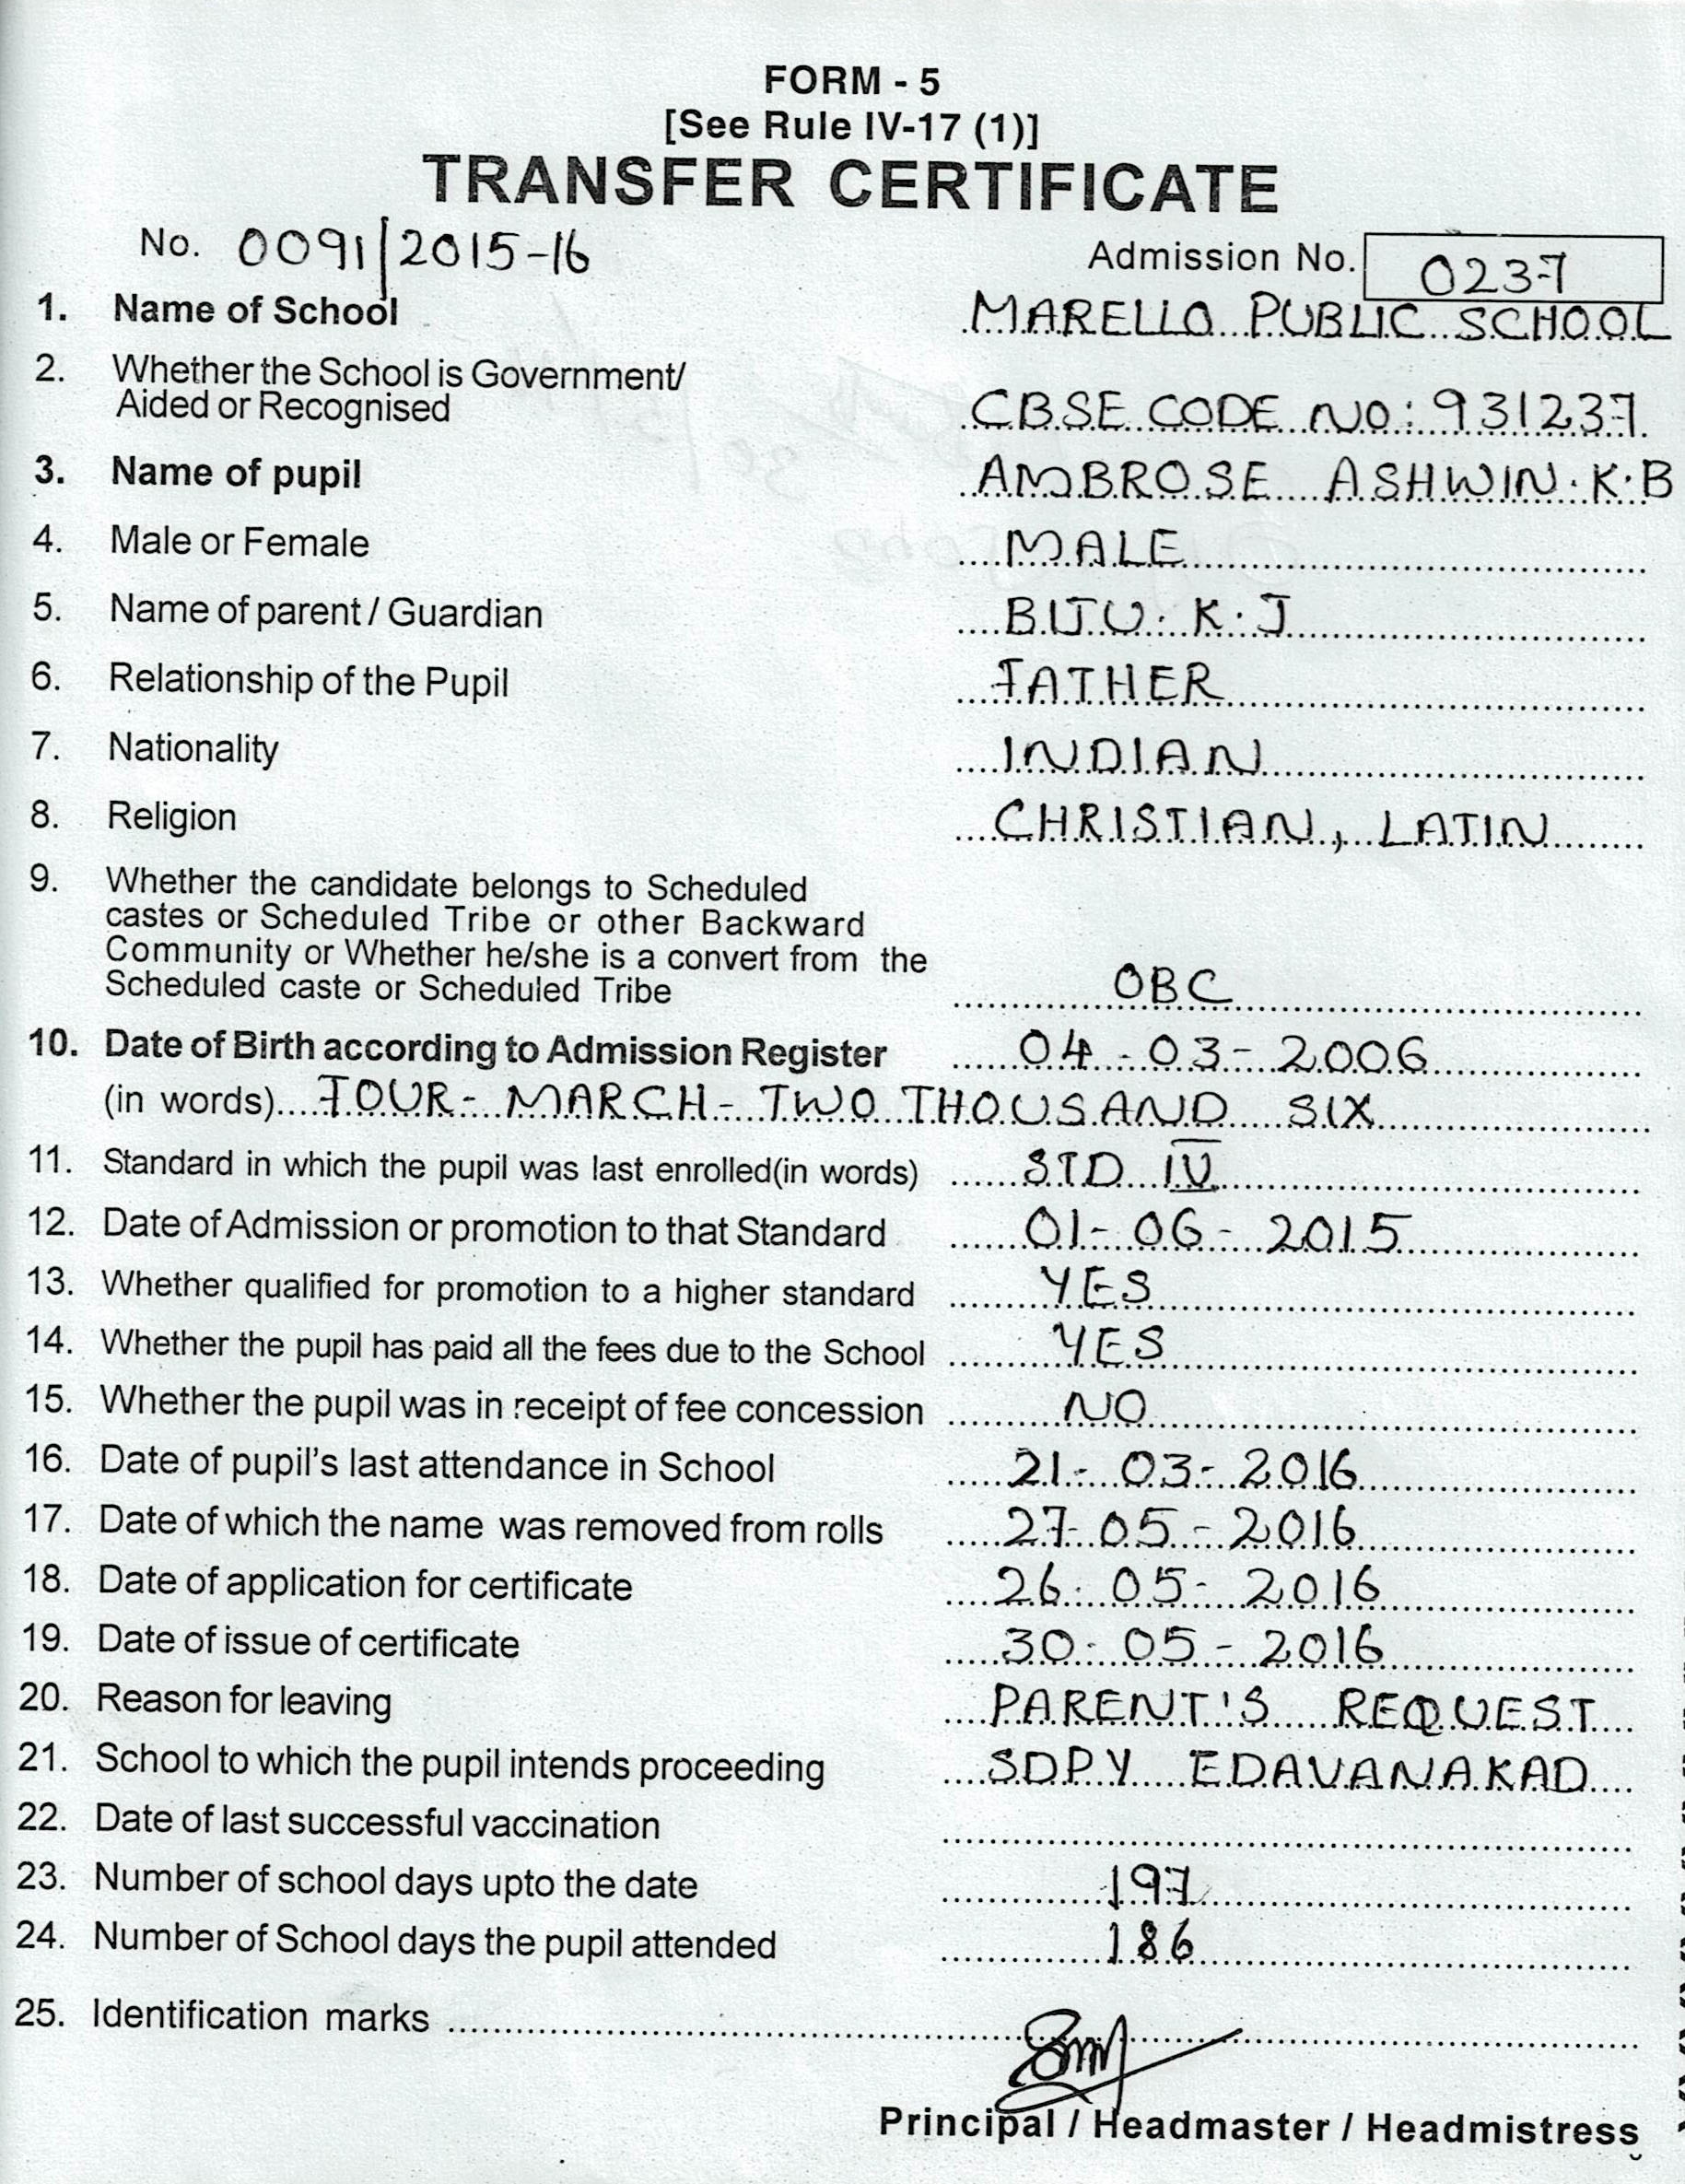 FORM - 5
[See Rule IV-17 (1)]
TRANSFER CERTIFICATE
No. 0091/2015-16 Admission No. 0237
1. Name of School MARELLO PUBLIC SCHOOL
2. Whether the School is Government/
Aided or Recognised CBSE CODE NO: 931237
3. Name of pupil AMBROSE ASHWIN.K.B
4. Male or Female MALE
5. Name of parent / Guardian BIJU. K. J
6. Relationship of the Pupil FATHER
7. Nationality INDIAN
8. Religion CHRISTIAN, LATIN
9. Whether the candidate belongs to Scheduled
castes or Scheduled Tribe or other Backward
Community or Whether he/she is a convert from the
Scheduled caste or Scheduled Tribe OBC
10. Date of Birth according to Admission Register 04-03-2006
(in words) FOUR- MARCH- TWO THOUSAND SIX
11. Standard in which the pupil was last enrolled(in words) STD IV
12. Date of Admission or promotion to that Standard 01-06-2015
13. Whether qualified for promotion to a higher standard YES
14. Whether the pupil has paid all the fees due to the School YES
15. Whether the pupil was in receipt of fee concession NO
16. Date of pupil's last attendance in School 21-03-2016
17. Date of which the name was removed from rolls 27-05-2016
18. Date of application for certificate 26-05-2016
19. Date of issue of certificate 30-05-2016
20. Reason for leaving PARENT'S REQUEST
21. School to which the pupil intends proceeding SDPY EDAVANAKAD
22. Date of last successful vaccination
23. Number of school days upto the date 197
24. Number of School days the pupil attended 186
25. Identification marks
Principal / Headmaster / Headmistress